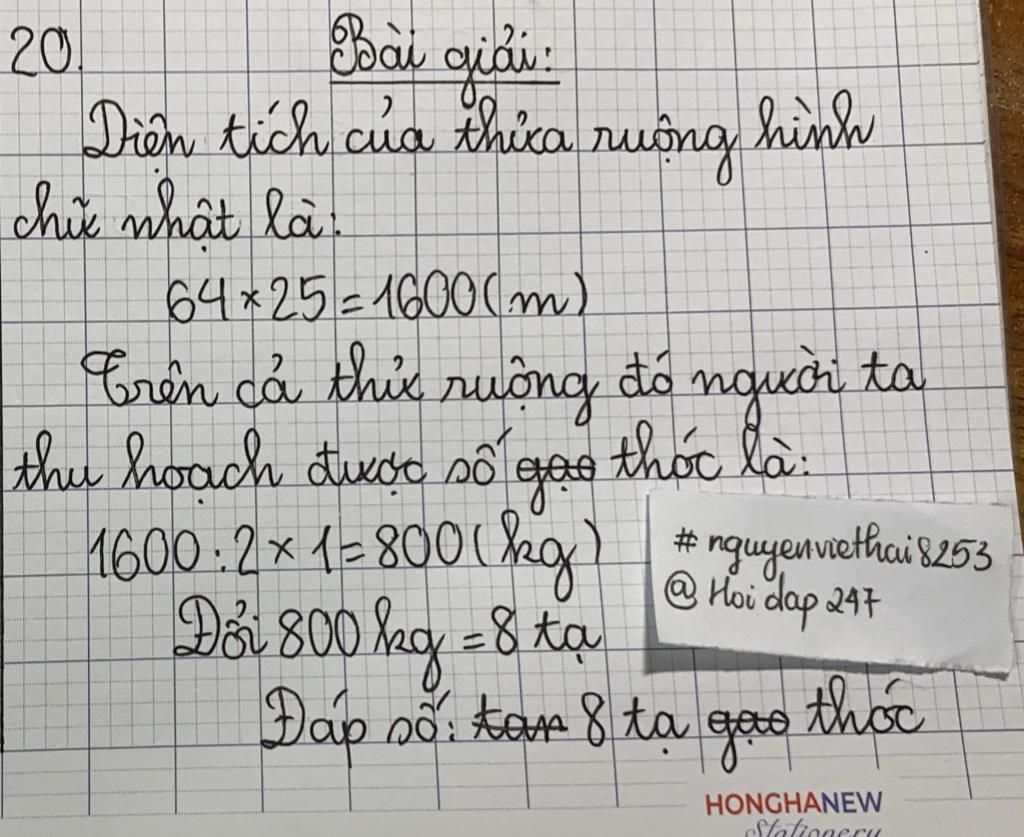 20. Bài giải:
Diện tích của thửa ruộng hình
chữ nhật là:
64 × 25 = 1600 (m)
Trên cả thửa ruộng đó người ta
thu hoạch được số gạo thóc là:
1600 : 2 × 1 = 800 (kg)
Đổi 800 kg = 8 tạ
Đáp số: 8 tạ gạo thóc
# nguyenviethai8253
@ Hoi dap 247
HONGHANEW
Stationery